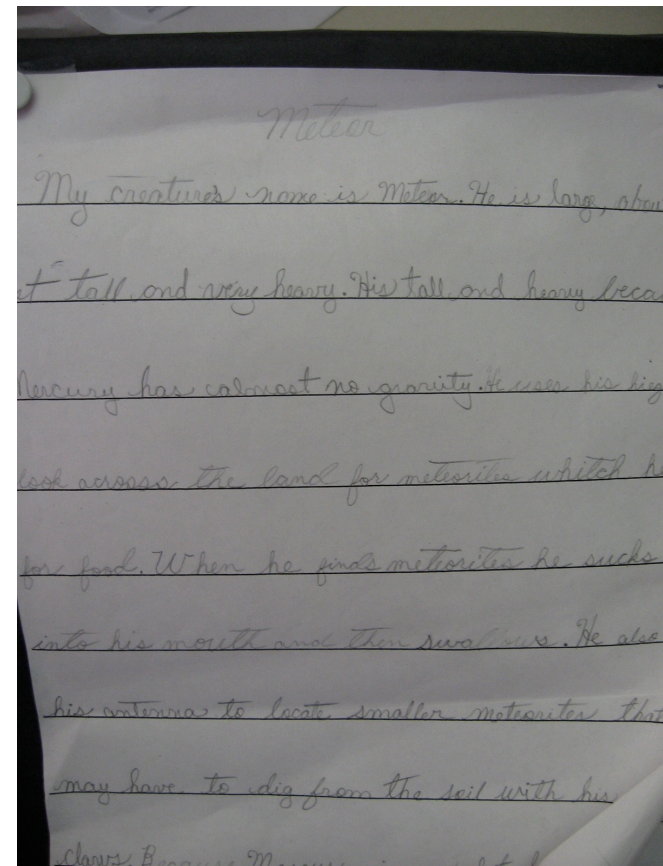 Meteor
My creature's name is Meteor. He is large, abou
tall and very heavy. His tall and heavy beca
Mercury has almost no gravity. He uses his
look across the land for meteorites whitch h
for food. When he finds meteorites he sucks
into his mouth and then swallows. He also
his antenna to locate smaller meteorites that
may have to dig from the soil with his
claws. Because